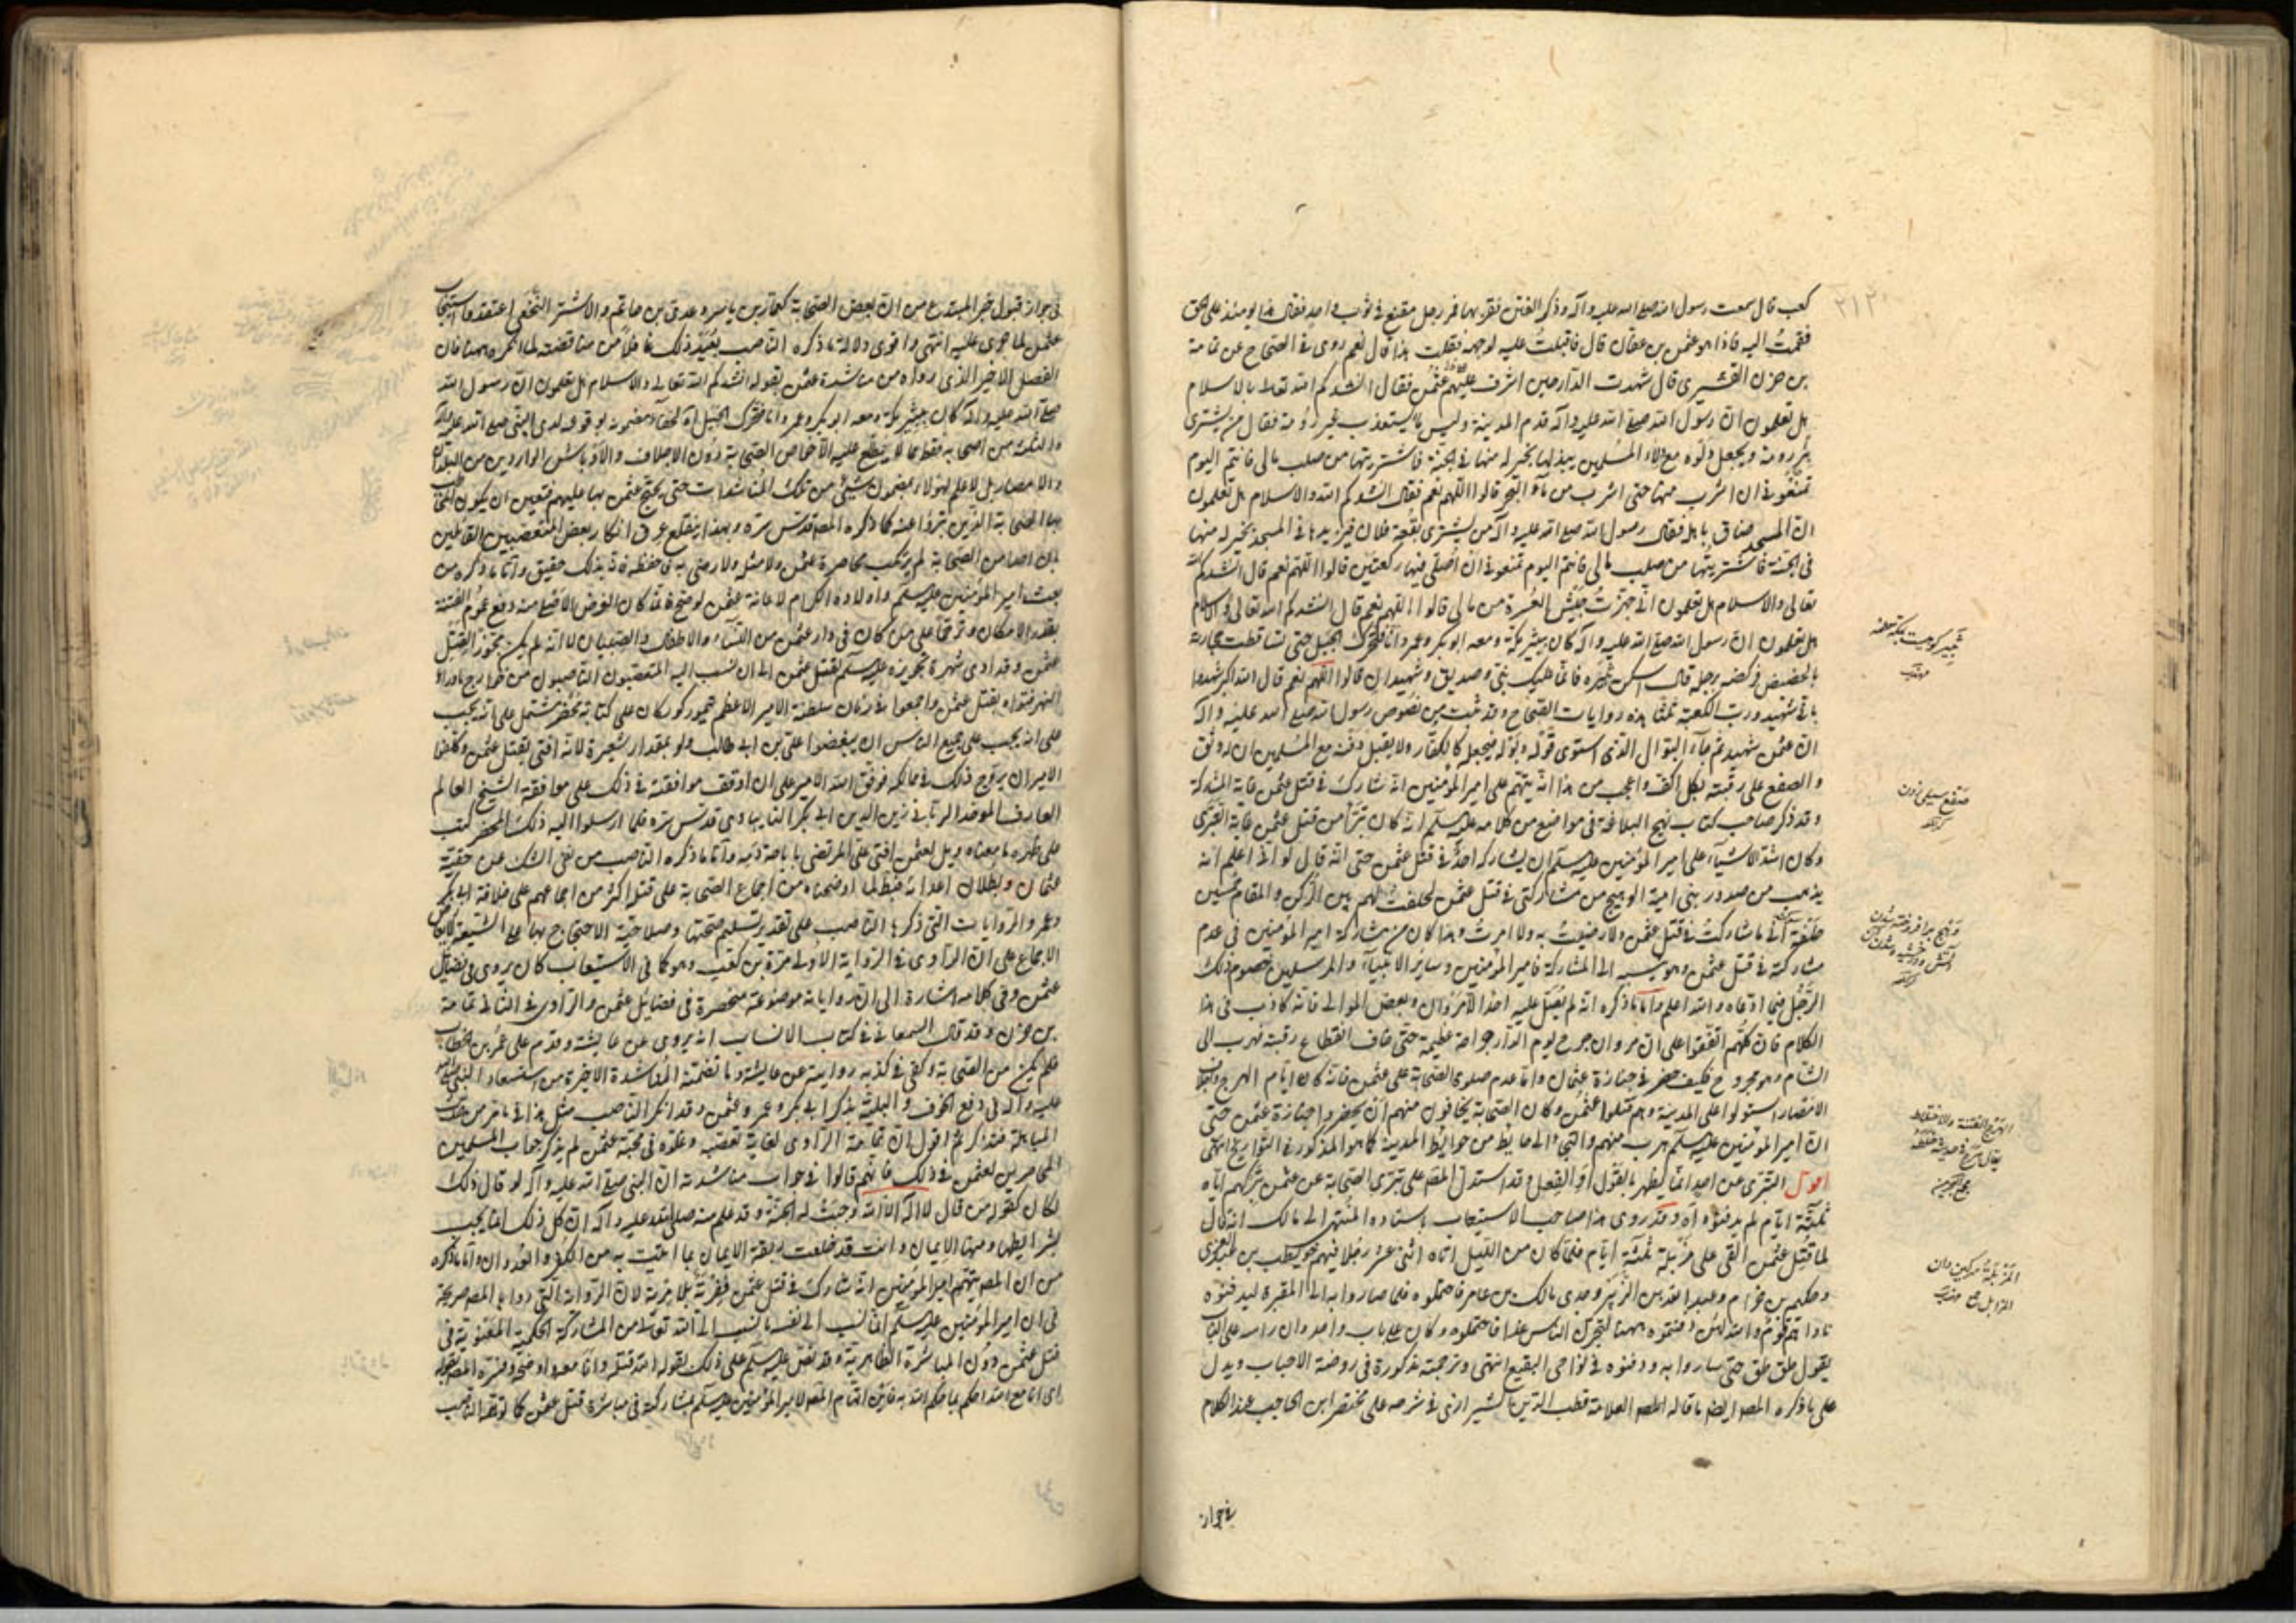 كعب قال سمعت رسول الله صلى الله عليه وآله وذكر الفتن فقربها فمر رجل مقنع في ثوب واحد فقال هذا يومئذ على الحق
فقمت اليه فاذا هو عثمن بن عفان قال فاقبلت عليه لوجهه فقلت هذا قال نعم روى في الصحاح عن ثمامة
بن حزن القشيرى قال شهدت الدار حين اشرف عليهم عثمن فقال انشدكم الله تعالى بالاسلام
هل تعلمون ان رسول الله صلى الله عليه وآله قدم المدينة وليس بها يستعذب غير رومة فقال من يشترى
بئر رومة ويجعل دلوه مع دلاء المسلمين بخير له منها في الجنة فاشتريتها من صلب مالى فانتم اليوم
تمنعوننى ان اشرب منها حتى اشرب من ماء البحر قالوا اللهم نعم فقال انشدكم الله والاسلام هل تعلمون
ان المسجد ضاق باهله فقال رسول الله صلى الله عليه وآله من يشترى بقعة فلان فيزيدها في المسجد بخير له منها
فى الجنة فاشتريتها من صلب مالى فانتم اليوم تمنعوننى ان اصلى فيها ركعتين قالوا اللهم نعم قال انشدكم الله
تعالى والاسلام هل تعلمون انى جهزت جيش العسرة من مالى قالوا اللهم نعم قال انشدكم الله تعالى والاسلام
هل تعلمون ان رسول الله صلى الله عليه وآله كان بثبير مكة ومعه ابو بكر وعمر وانا فتحرك الجبل حتى تساقطت حجارته
بالحضيض فركضه برجله قال اسكن ثبير فانما عليك نبى وصديق وشهيدان قالوا اللهم نعم قال الله اكبر شهدوا
بانى شهيد ورب الكعبة ثلثا هذه روايات الصحاح وقد ثبت من نصوص رسول الله صلى الله عليه وآله
ان عثمن شهيد ثم جاء البوال الذى استوى قوله وبوله فيجعله كالكفار ولا يقبل دفنه مع المسلمين اف له وتف
والصفع على رقبته بكل اكف واعجب من هذا انه يتهم على امير المؤمنين انه شارك في قتل عثمن
وقد ذكر صاحب كتاب نهج البلاغة فى مواضع من كلامه عليه سلم انه كان يتبرأ من قتل عثمن غاية التبرى
وكان اشد الاشياء على امير المؤمنين عليه سلم ان يشاركه احد في قتل عثمن حتى انه قال لو انى اعلم انه
يذهب من صدور بنى امية الوهج من مشاركتى في قتل عثمن لحلفت لهم بين الركن والمقام خمسين
حلفة انى ما شاركت في قتل عثمن ولا رضيت به ولا امرت
مشاركته في قتل عثمن وهو ينسبه الى المشاركة فامير المؤمنين وساير الانبياء والمرسلين خصوم ذلك
الرجل فيما ادعاه والله اعلم واما ما ذكره انه لم يصل عليه احد الا مروان وبعض الموالى فانه كاذب فى هذا
الكلام فان كلهم اتفقوا على ان مروان جرح يوم الدار جراحة عظيمة حتى خاف انقطاع رقبته فهرب الى
الشام وهو مجروح فكيف حضر في جنازة عثمان واما عدم صلوة الصحابة على عثمن فانه كان ايام الهرج
الامصار استولوا على المدينة وهم قتلوا عثمن وكان الصحابة يخافون منهم ان يحضروا جنازة عثمن حتى
ان امير المؤمنين عليه سلم هرب منهم والتجى الى حايط من حوايط المدينة كما هو المذكور في التواريخ انتهى
اقول التبرى عن احد انما يظهر بالقول او الفعل وقد استدل المصنف على تبرى الصحابة عن عثمن بتركهم اياه
ثلثة ايام لم يدفنوه وقد روى هذا صاحب الاستيعاب باسناده المنتهى الى مالك انه قال
لما قتل عثمن القى على مزبلة ثلثة ايام فلما كان من الليل اتاه اثنى عشر رجلا فيهم حويطب بن عبد العزى
وحكيم بن حزام وعبد الله بن الزبير وجدى مالك بن عامر فاحتملوه فلما صاروا به الى المقبرة ليدفنوه
ناداهم قوم والله لئن دفنتموه ههنا لنخبرن الناس غدا فاحتملوه وكان على باب واحد وان راسه على الباب
يقول طق طق حتى ساروا به ودفنوه في نواحى البقيع انتهى وترجمته مذكورة فى روضة الاحباب ويدل
على ما ذكره المصنف ايضا ما قاله العلامة قطب الدين الشيرازى في شرحه على مختصر ابن الحاجب عند الكلام
فى جواز
في جواز قبول خبر المبتدع من ان بعض الصحابة كعمار بن ياسر وعدى بن حاتم والاشتر النخعى اعتقدوا
عثمن لما جرى عليه انتهى واقوى دلالة ما ذكره الناصب بعيد ذلك غافلا من مناقضته لما انكره ههنا فان
الفصل الاخير الذى رواه من مناشدة عثمن بقوله انشدكم الله تعالى والاسلام هل تعلمون ان رسول الله
صلى الله عليه وآله كان بثبير مكة ومعه ابو بكر وعمر وانا فتحرك الجبل
والثلثة من اصحابه فقط مما لا يطلع عليه الا خواص الصحابة دون الاجلاف والاوباش الواردين من البلدان
والامصار بل لا علم لهؤلاء بمضمون شىء من تلك المناشدات حتى يحتج عثمن بها عليهم فتعين ان يكون
بها الصحابة الذين تبرؤا عنه كما ذكره المصنف قدس سره وبهذا ينقلع عرق انكار بعض المتعصبين القائلين
بان احدا من الصحابة لم يرتكب محاصرة عثمن ولا قتله ولا رضى به واما ما ذكره من
بعث امير المؤمنين عليه سلم واولاده الكرام لاعانة عثمن
بقدر الامكان وترحما على من كان فى دار عثمن من النساء والاطفال والصبيان لا انه لم يكن يجوز القتل
النهر فتواه بقتل عثمن واجمعوا في زمان سلطنة الامير الاعظم تيمور كوركان على كتابة محضر مشتمل على انه يجب
على انه يجب على جميع الناس ان يبغضوا على بن ابى طالب ولو بمقدار شعيرة لانه افتى بقتل عثمن
الامير ان يروج ذلك في ممالكه فوفق الله الامير على ان اوقف موافقته في ذلك على موافقة الشيخ العالم
العارف الموحد الربانى زين الدين ابى بكر التايبادى قدس سره فلما ارسلوا اليه ذلك المحضر كتب
على ظهره ما معناه ويل لعثمن افتى على المرتضى باباحة دمه واما ما ذكره الناصب من نفى الشك عن حقية
عثمان وبطلان اعدائه فبطل لما اوضحناه من اجماع الصحابة على قتله اكثر من اجماعهم على خلافة ابى بكر
وعمر والروايات التى ذكرها الناصب على تقدير تسليم صحتها وصلاحية الاحتجاج بها على الشيعة
الاجماع على ان الراوى في الرواية الاولى مرة بن كعب وهو كما فى الاستيعاب كان يروى فى فضايل
عثمن وفى كلامه اشارة الى ان رواياته موضوعة منحصرة فى فضايل عثمن والراوى في الثانى ثمامة
بن حزن وقد قال السمعانى في كتاب الانساب انه يروى عن عايشة وقدم على عمر بن الخطاب
فلم يكن من الصحابة وكفى في كذبه روايته عن عايشة وما تضمنته المناشدة الاخيرة من استسعاد النبى صلى الله
عليه وآله فى دفع الخوف والبلية بذكر ابى بكر وعمر وعثمن وقد انكر الناصب مثل هذا
المباهلة فتذكر ثم اقول ان ثمامة الراوى لغاية تعصبه وغلوه فى محبة عثمن لم يذكر جواب المسلمين
المحاصرين لعثمن في ذلك فانهم قالوا في جواب مناشدته ان النبى صلى الله عليه وآله لو قال ذلك
لكان كقوله من قال لا اله الا الله وجبت له الجنة وقد علم منه صلى الله عليه وآله ان كل ذلك انما يجب
بشرايطها ومنها الايمان وانت قد خلعت ربقة الايمان بما اتيت به من الكفر والعدوان واما ما ذكره
من ان المصنف يتهم امير المؤمنين انه شارك في قتل عثمن ففرية بلا مرية لان الرواية التى رواها المصنف صريحة
فى ان امير المؤمنين عليه سلم انما نسب الى نفسه ما نسب الى الله تعالى من المشاركة الحكمية المعنوية فى
قتل عثمن دون المباشرة الظاهرية وقد نص عليه سلم على ذلك بقوله الله قتله وانا معه
اى انا مع الله احكم بما حكم الله به فاين اتهام المصنف لامير المؤمنين عليه سلم بمشاركته فى مباشرة قتل عثمن كما توهمه الناصب